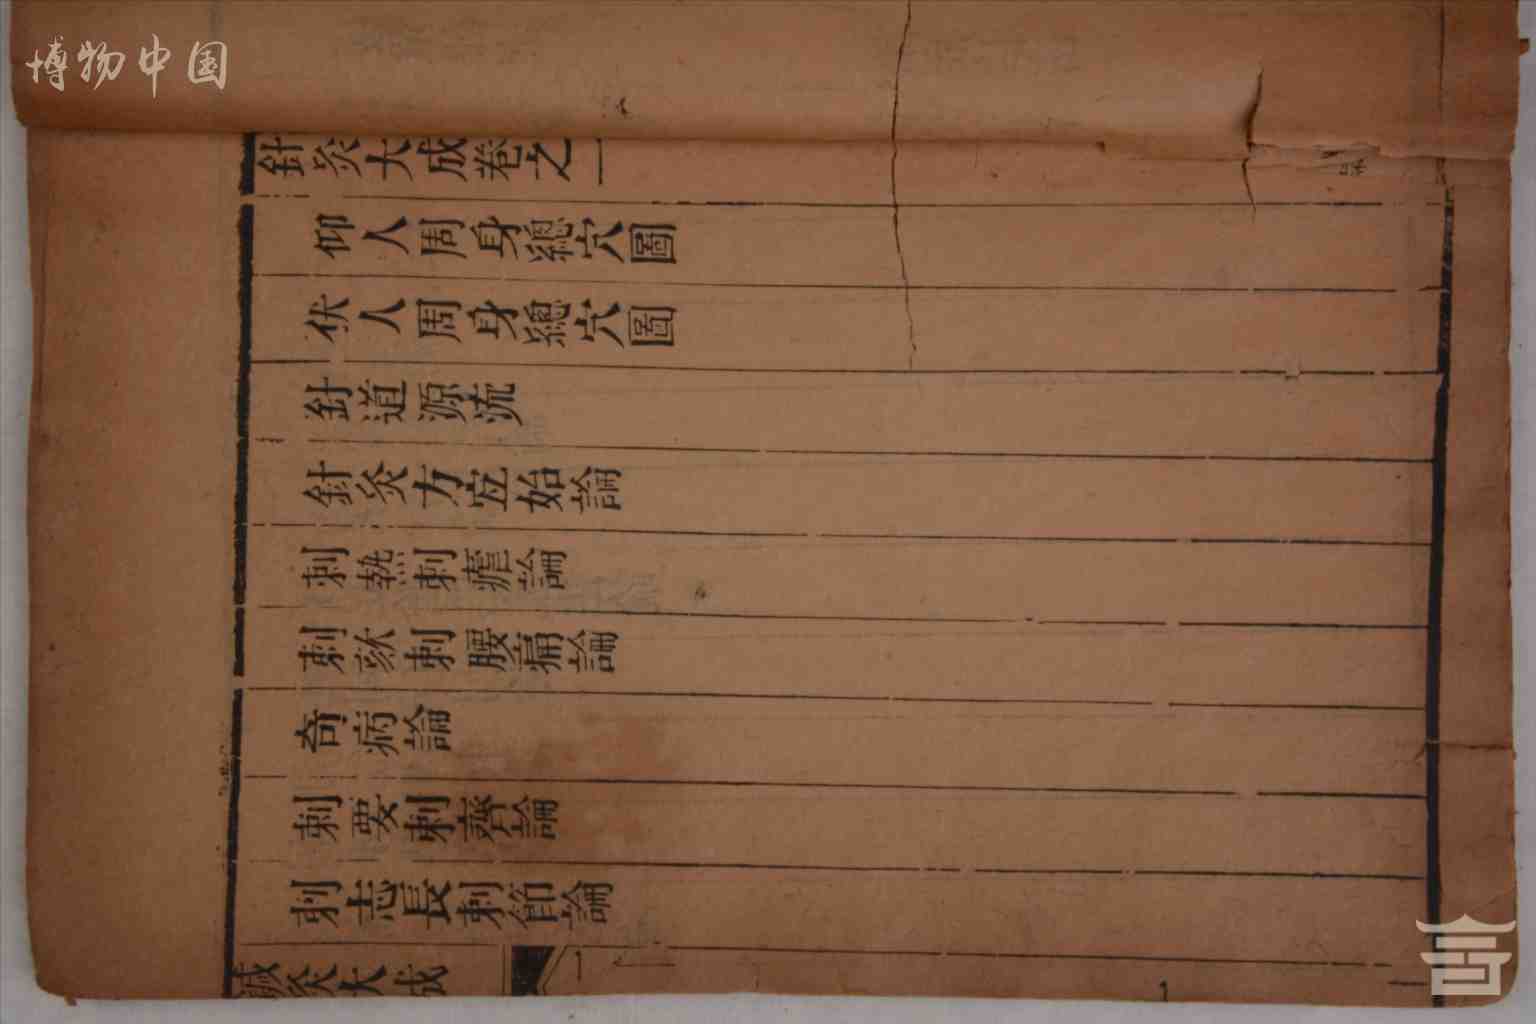 博物中国
針灸大成卷之一
仰人周身總穴圖
伏人周身總穴圖
針道源流
針灸方宜始論
刺熱刺瘧論
刺欬刺腰痛論
奇病論
刺要刺齊論
刺志長刺節論
鍼灸大成
一